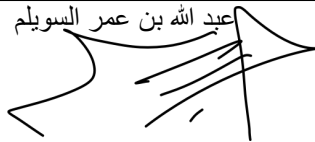 عبد الله بن عمر السويلم